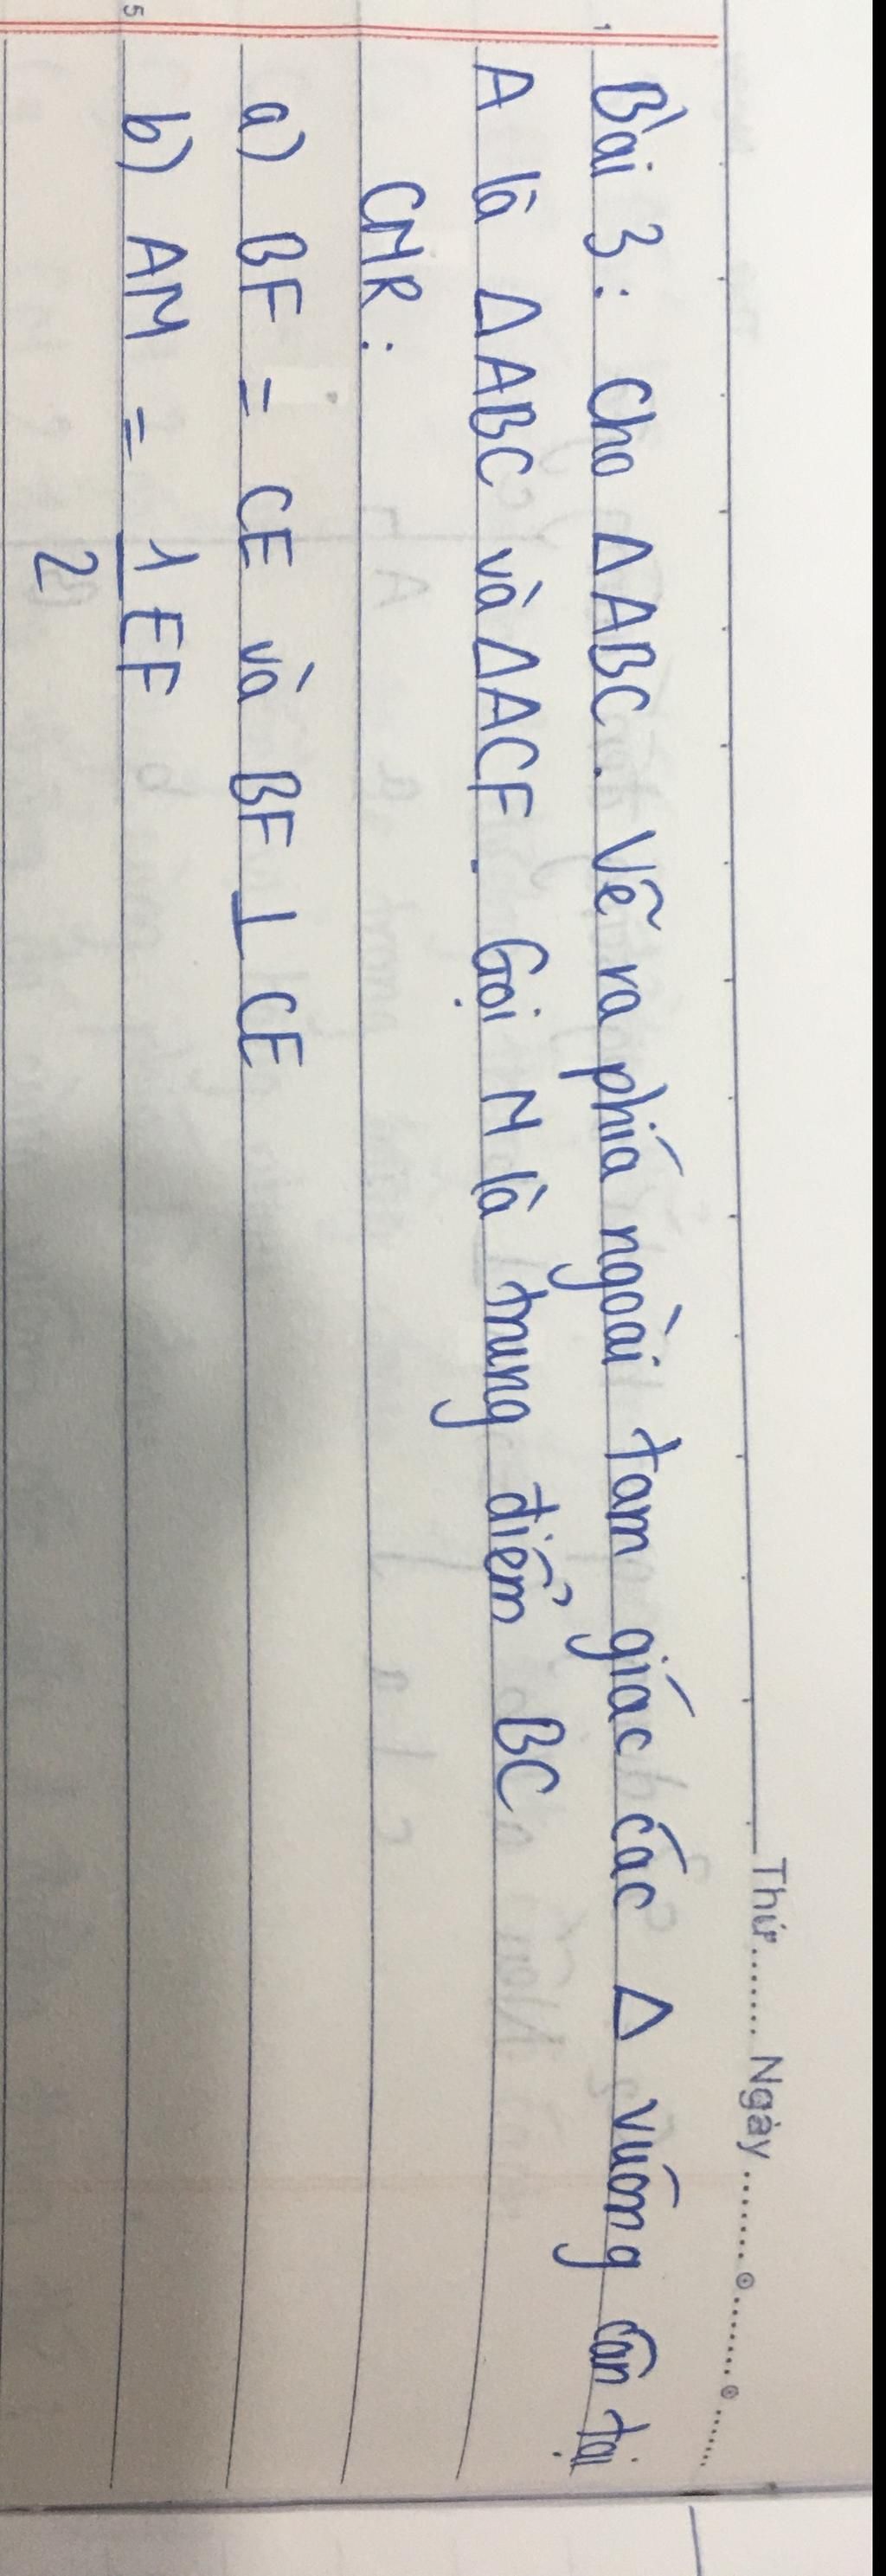 Thứ....... Ngày...................
Bài 3: Cho ΔABC. Vẽ ra phía ngoài tam giác các Δ vuông cân tại
A là ΔABC và ΔACF. Gọi M là trung điểm BC
CMR:
a) BF = CE và BF ⊥ CE
b) AM = 1/2 EF